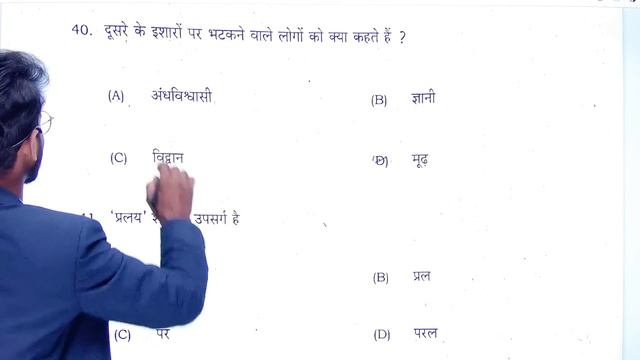 40. दूसरे के इशारों पर भटकने वाले लोगों को क्या कहते हैं ?
(A) अंधविश्वासी (B) ज्ञानी
(C) विद्वान (D) मूढ़
'प्रलय' उपसर्ग है
(B) प्रल
(C) पर (D) परल